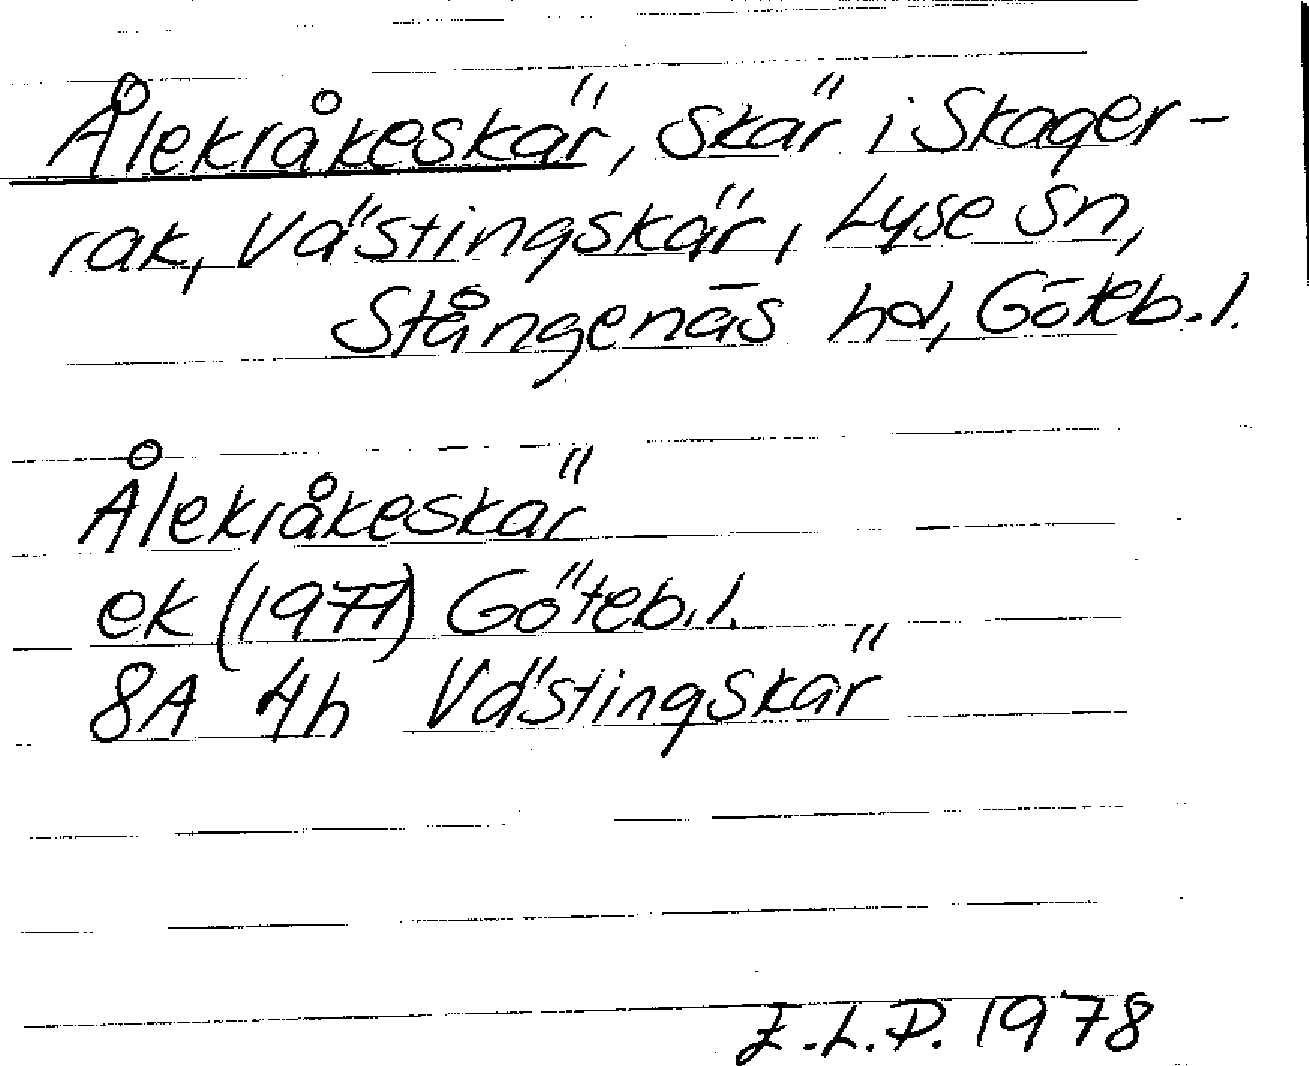 Ålekråkeskär, skär i Skager-
rak, Västingskär, Lyse sn,
Stångenäs hd, Göteb.l.
Ålekråkeskär
ek (1977) Göteb.l.
8A 4h Västingskär
E.L.P. 1978